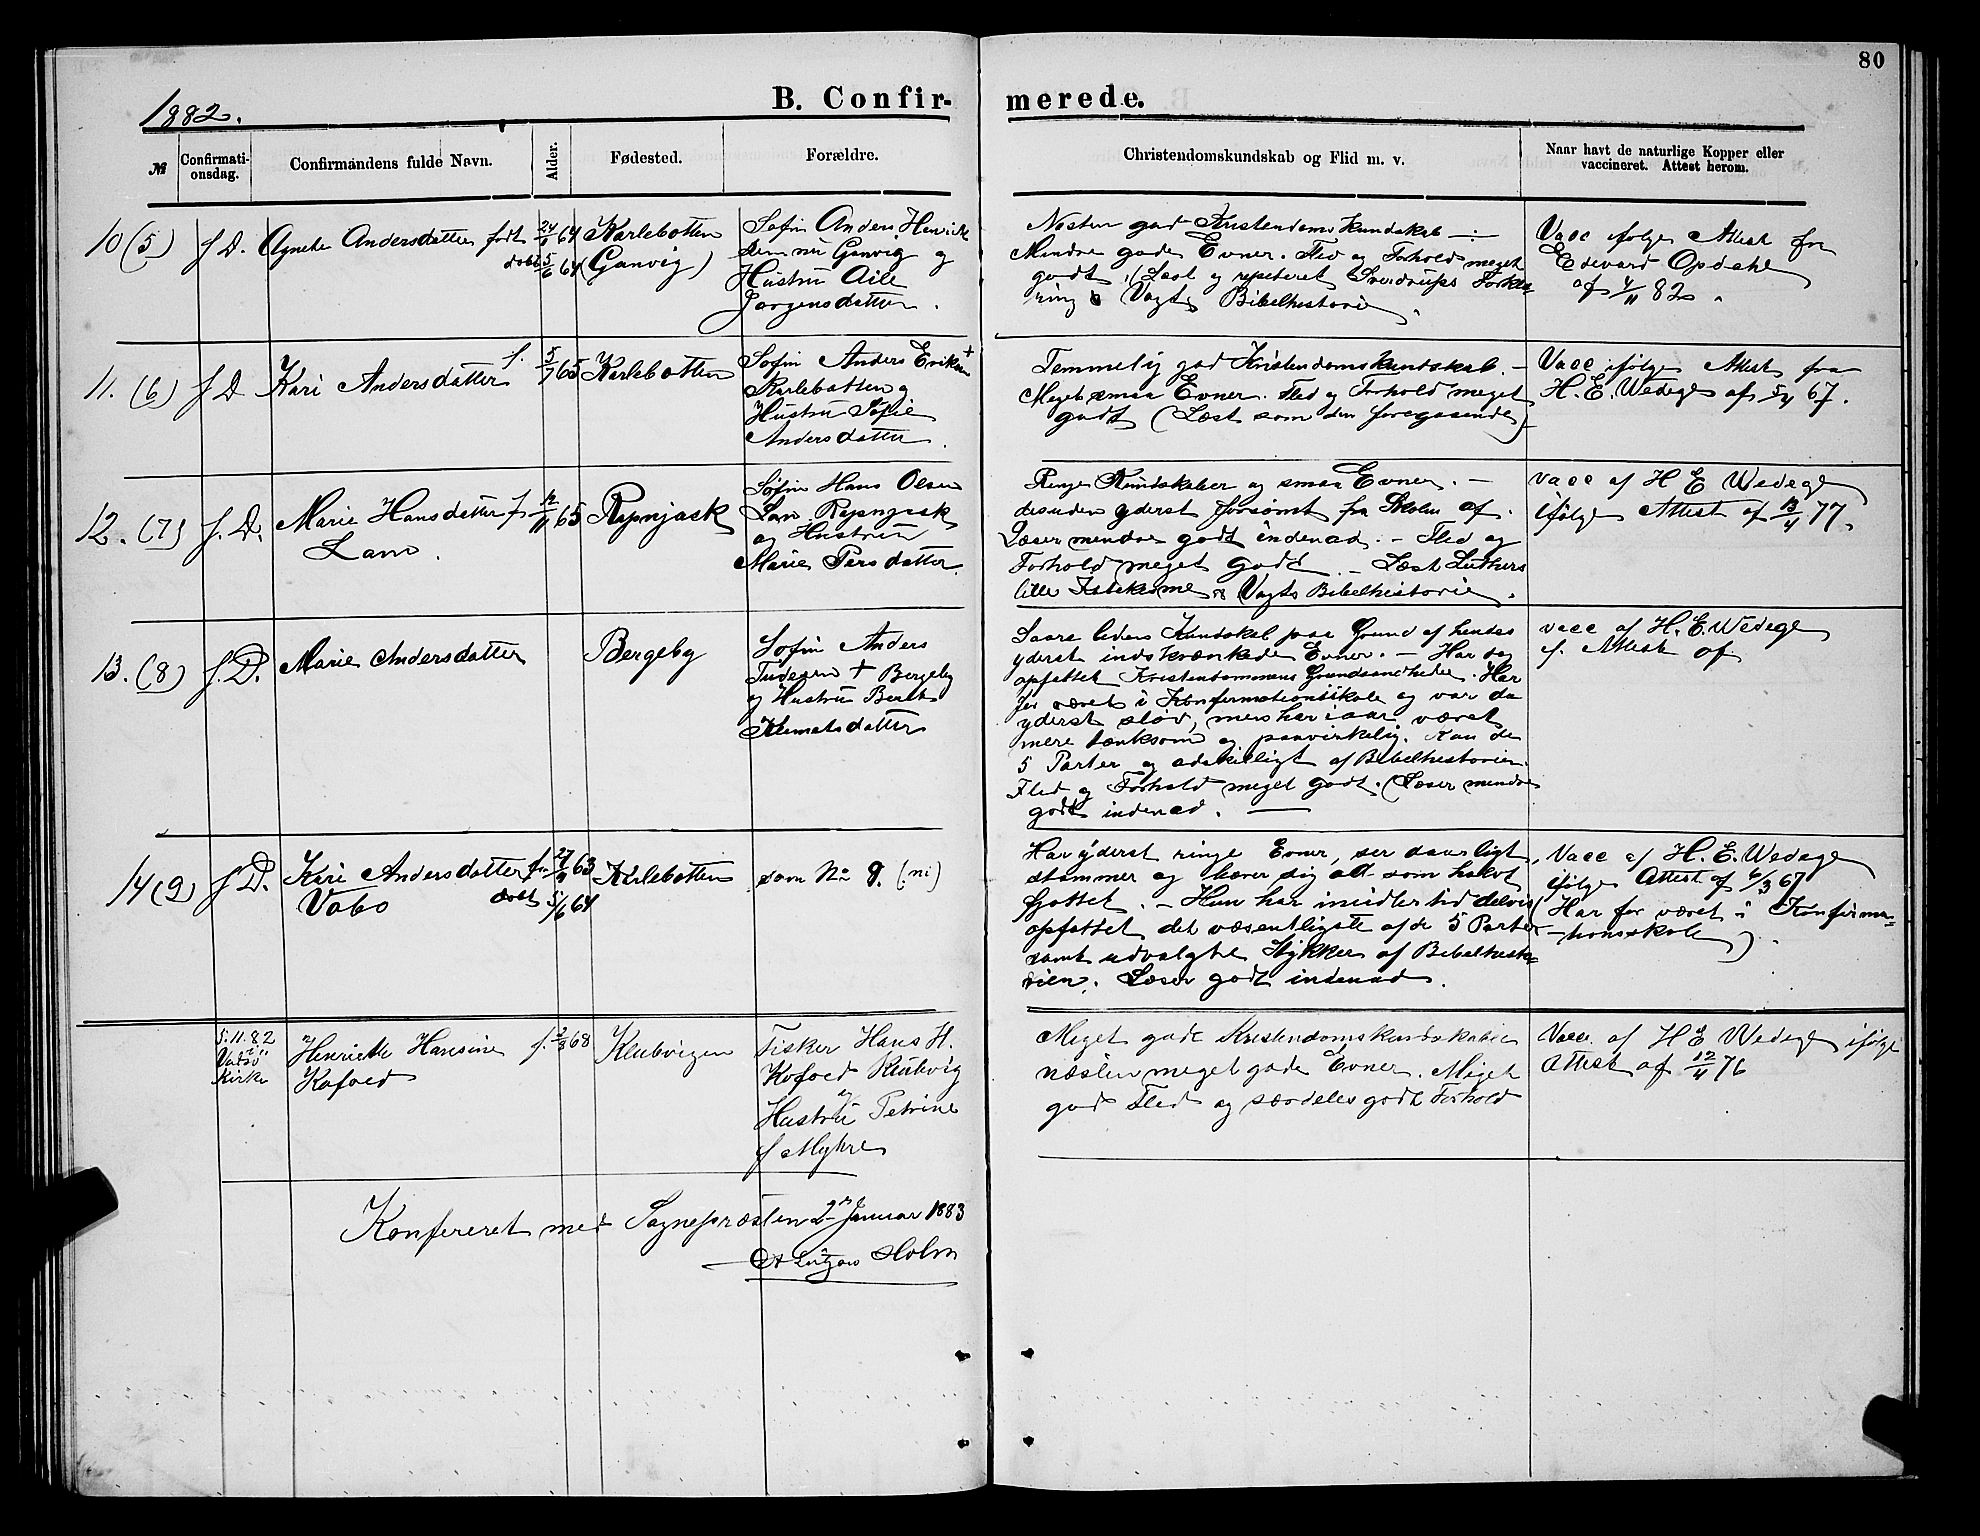 80
B. Confir-merede.
1882.
№
Confirmati-
onsdag.
Confirmandens fulde Navn.
Alder.
Fødested.
Forældre.
Christendomskundskab og Flid m. v.
Naar havt de naturlige Kopper eller
vaccineret. Attest herom.
10 (5) f D. Agnete Andersdatter født 24 64
døbt 5/6 64
Karlebotten
(Ganvig)
Søfin Anders Henrik
sen nu Ganvig og
Hustru Aile
Jørgensdatter.
Næsten god Kristendomskundskab —
Mindre gode Evner. Flid og Forhold meget
godt. (Læst og repeteret Sverdrups Forkla=
ring & Vogts Bibelhistorie.
Vacc ifølge Attest fra
Edevard Opdahl
af 4/11 82.
11. (6) f D Kari Andersdatter f. 5/7 65
Karlebotten
Søfin Anders Eriksen +
Karlebotten og
Hustru Sofie
Andersdatter.
Temmelig god Kristendomskundskab. —
Meget smaa Evner. Flid og Forhold meget
godt (Læst som den foregaaende)
Vacc ifølge Attest fra
H. E. Wedege af 5/4 67.
12. (7) f. D. Marie Hansdatter f 65
Lam.
Rapnjask
Søfin Hans Olsen
Lam Rapnjask
og Hustru
Marie Persdatter.
Ringe Kundskaber og smaa Evner. —
desuden yderst forsømt fra Skolen af.
Læser mindre godt indenad. — Flid og
Forhold meget godt. — Læst Luthers
lille Katekisme & Vogts Bibelhistorie.
vacc af H E Wedege
ifølge Attest af 13/4 77.
13. (8) f. D. Marie Andersdatter
Bergeby
Søfin Anders
Tudesen + Bergeby
og Hustru Berit
Klemetsdatter
Saare liden Kundskab paa Grund af hendes
yderst indskrænkede Evner. — Har dog
opfattet Kristendommens Grundsandheder. Har
før været i Konfirmationsskole og var da
yderst sløv, men har iaar været
mere tænksom og paavirkelig. Kan de
5 Parter og adskilligt af Bibelhistorien
Flid og Forhold meget godt. (Læser mindre
godt indenad. —
vacc af H. E. Wedege
if. Attest af
14 (9) f D. Kari Andersdatter f. 27 63
Vabo døbt 5/6 64
Karlebotten
som No 9. (ni)
Har yderst ringe Evner, ser daarligt,
stammer og bærer sig ad som halvt
fjottet. — Hun har imidlertid delvis
opfattet det væsentligste af de 5 Parter
samt udvalgte Stykker af Bibelhisto=
rien. Læser godt indenad.
Vacc af H. E. Wedege
ifølge Attest af 6/3 67
(Har før været i Konfirma=
tionsskole).
5.11.82
Vadsø
Kirke
Henriette Hansine f. 2/8 68
Kofoed
Klubvigen
Fisker Hans H.
Kofoed Klubvig
og
Hustru Petrine
f Myhre
Meget gode Kristendomskundskaber
næsten meget gode Evner. Meget
god Flid og særdeles godt Forhold
Vacc. af H E Wedege ifølge
Attest af 12/4 76
Konfereret med Sognepræsten 2den Januar 1883
Lützow Holm